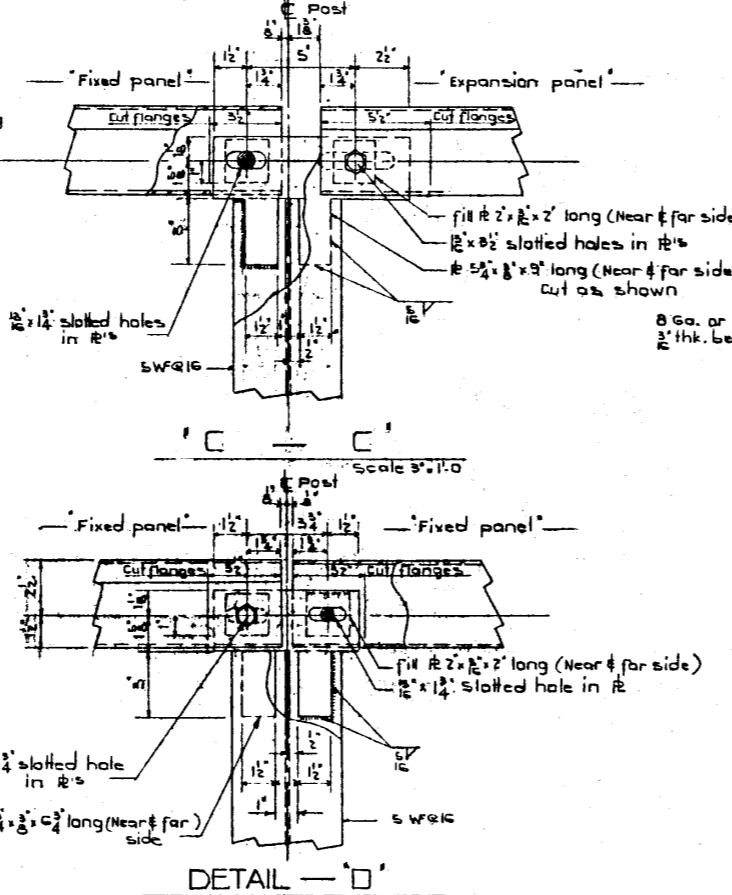 ℄ Post
1/8" 1 3/8"
1 1/2" 5" 2 1/2"
1 3/4" 1 3/4"
"Fixed panel" "Expansion panel"
Cut flanges 3 1/2" 5 1/2" Cut flanges
fill ℞ 2" x 3/16" x 2" long (Near & far side
13/16" x 3 1/2" slotted holes in ℞'s
℞ 5 3/4" x 3/8" x 9" long (Near & far side
Cut as shown
13/16" x 1 3/4" slotted holes
in ℞'s
5/16
8 Ga. or
3/16" thk. be
1 1/2" 1" 1 1/2"
1/2"
5 WF@16
"C — C"
Scale 3" = 1'-0
℄ Post
1/8" 1/8"
"Fixed panel" 1 1/2" 3 3/4" 1 1/2" "Fixed panel"
1 3/4" 1 3/4"
Cut flanges 3 1/2" 3 1/2" Cut flanges
2 1/2"
1 1/2"
fill ℞ 2" x 3/16" x 2" long (Near & far side)
13/16" x 1 3/4" slotted hole in ℞
3/4" slotted hole
in ℞'s
1/2"
5/16
1 1/2" 1 1/2"
1"
3/4" x 3/8" x 6 3/4" long (Near & far)
side
5 WF@16
DETAIL — "D"